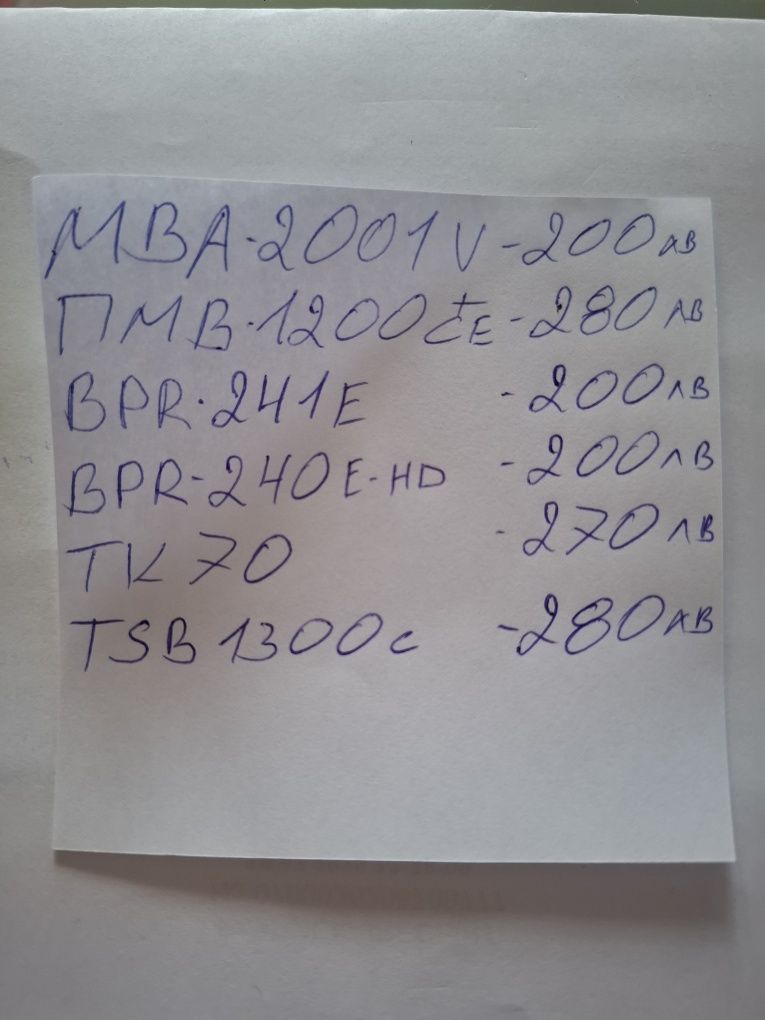 МВА-2001V - 200лв
ПМВ-1200СтЕ - 280лв
BPR-241E - 200лв
BPR-240E-HD - 200лв
ТК 70 - 270лв
TSB 1300c - 280лв